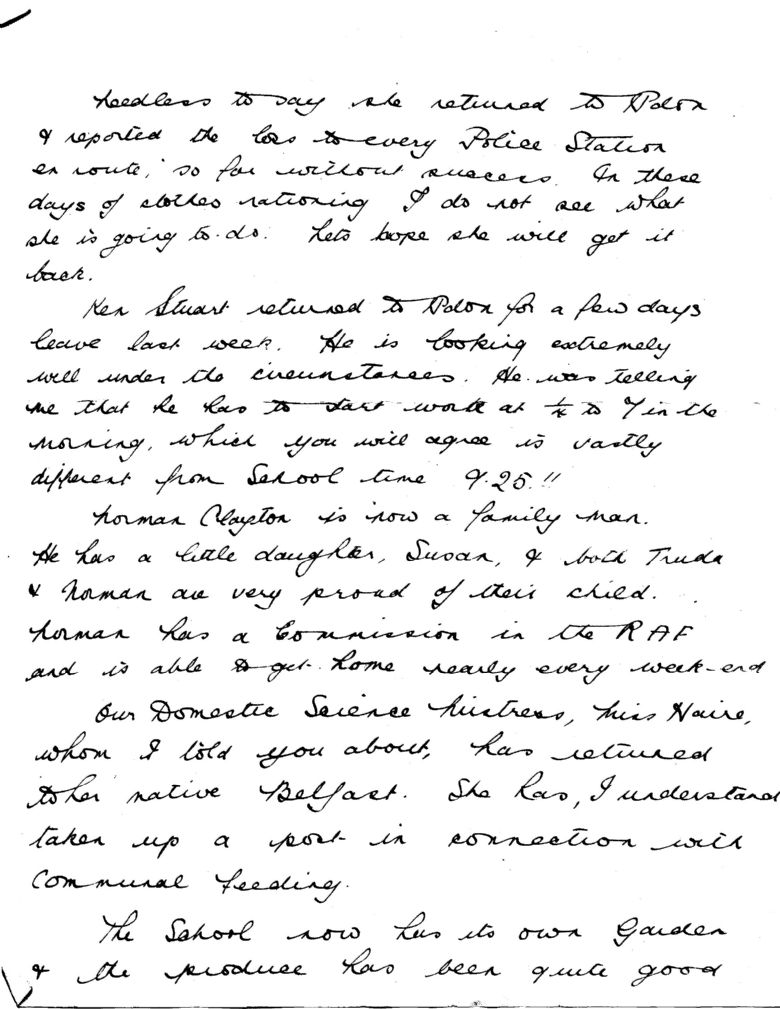 Needless to say she returned to Ndon
& reported the loss to every Police Station
en route, so far without success. In these
days of clothes rationing I do not see what
she is going to do. Lets hope she will get it
back.
Ken Stuart returned to Ndon for a few days
leave last week. He is looking extremely
well under the circumstances. He was telling
me that he has to start work at ¼ to 7 in the
morning, which you will agree is vastly
different from School time 9.25!!
Norman Clayton is now a family man.
He has a little daughter, Susan, & both Truda
& Norman are very proud of their child.
Norman has a Commission in the RAF
and is able to get home nearly every week-end
Our Domestic Science Mistress, Miss Haire,
whom I told you about, has returned
to her native Belfast. She has, I understand
taken up a post in connection with
Communal Feeding.
The School now has its own Garden
& the produce has been quite good